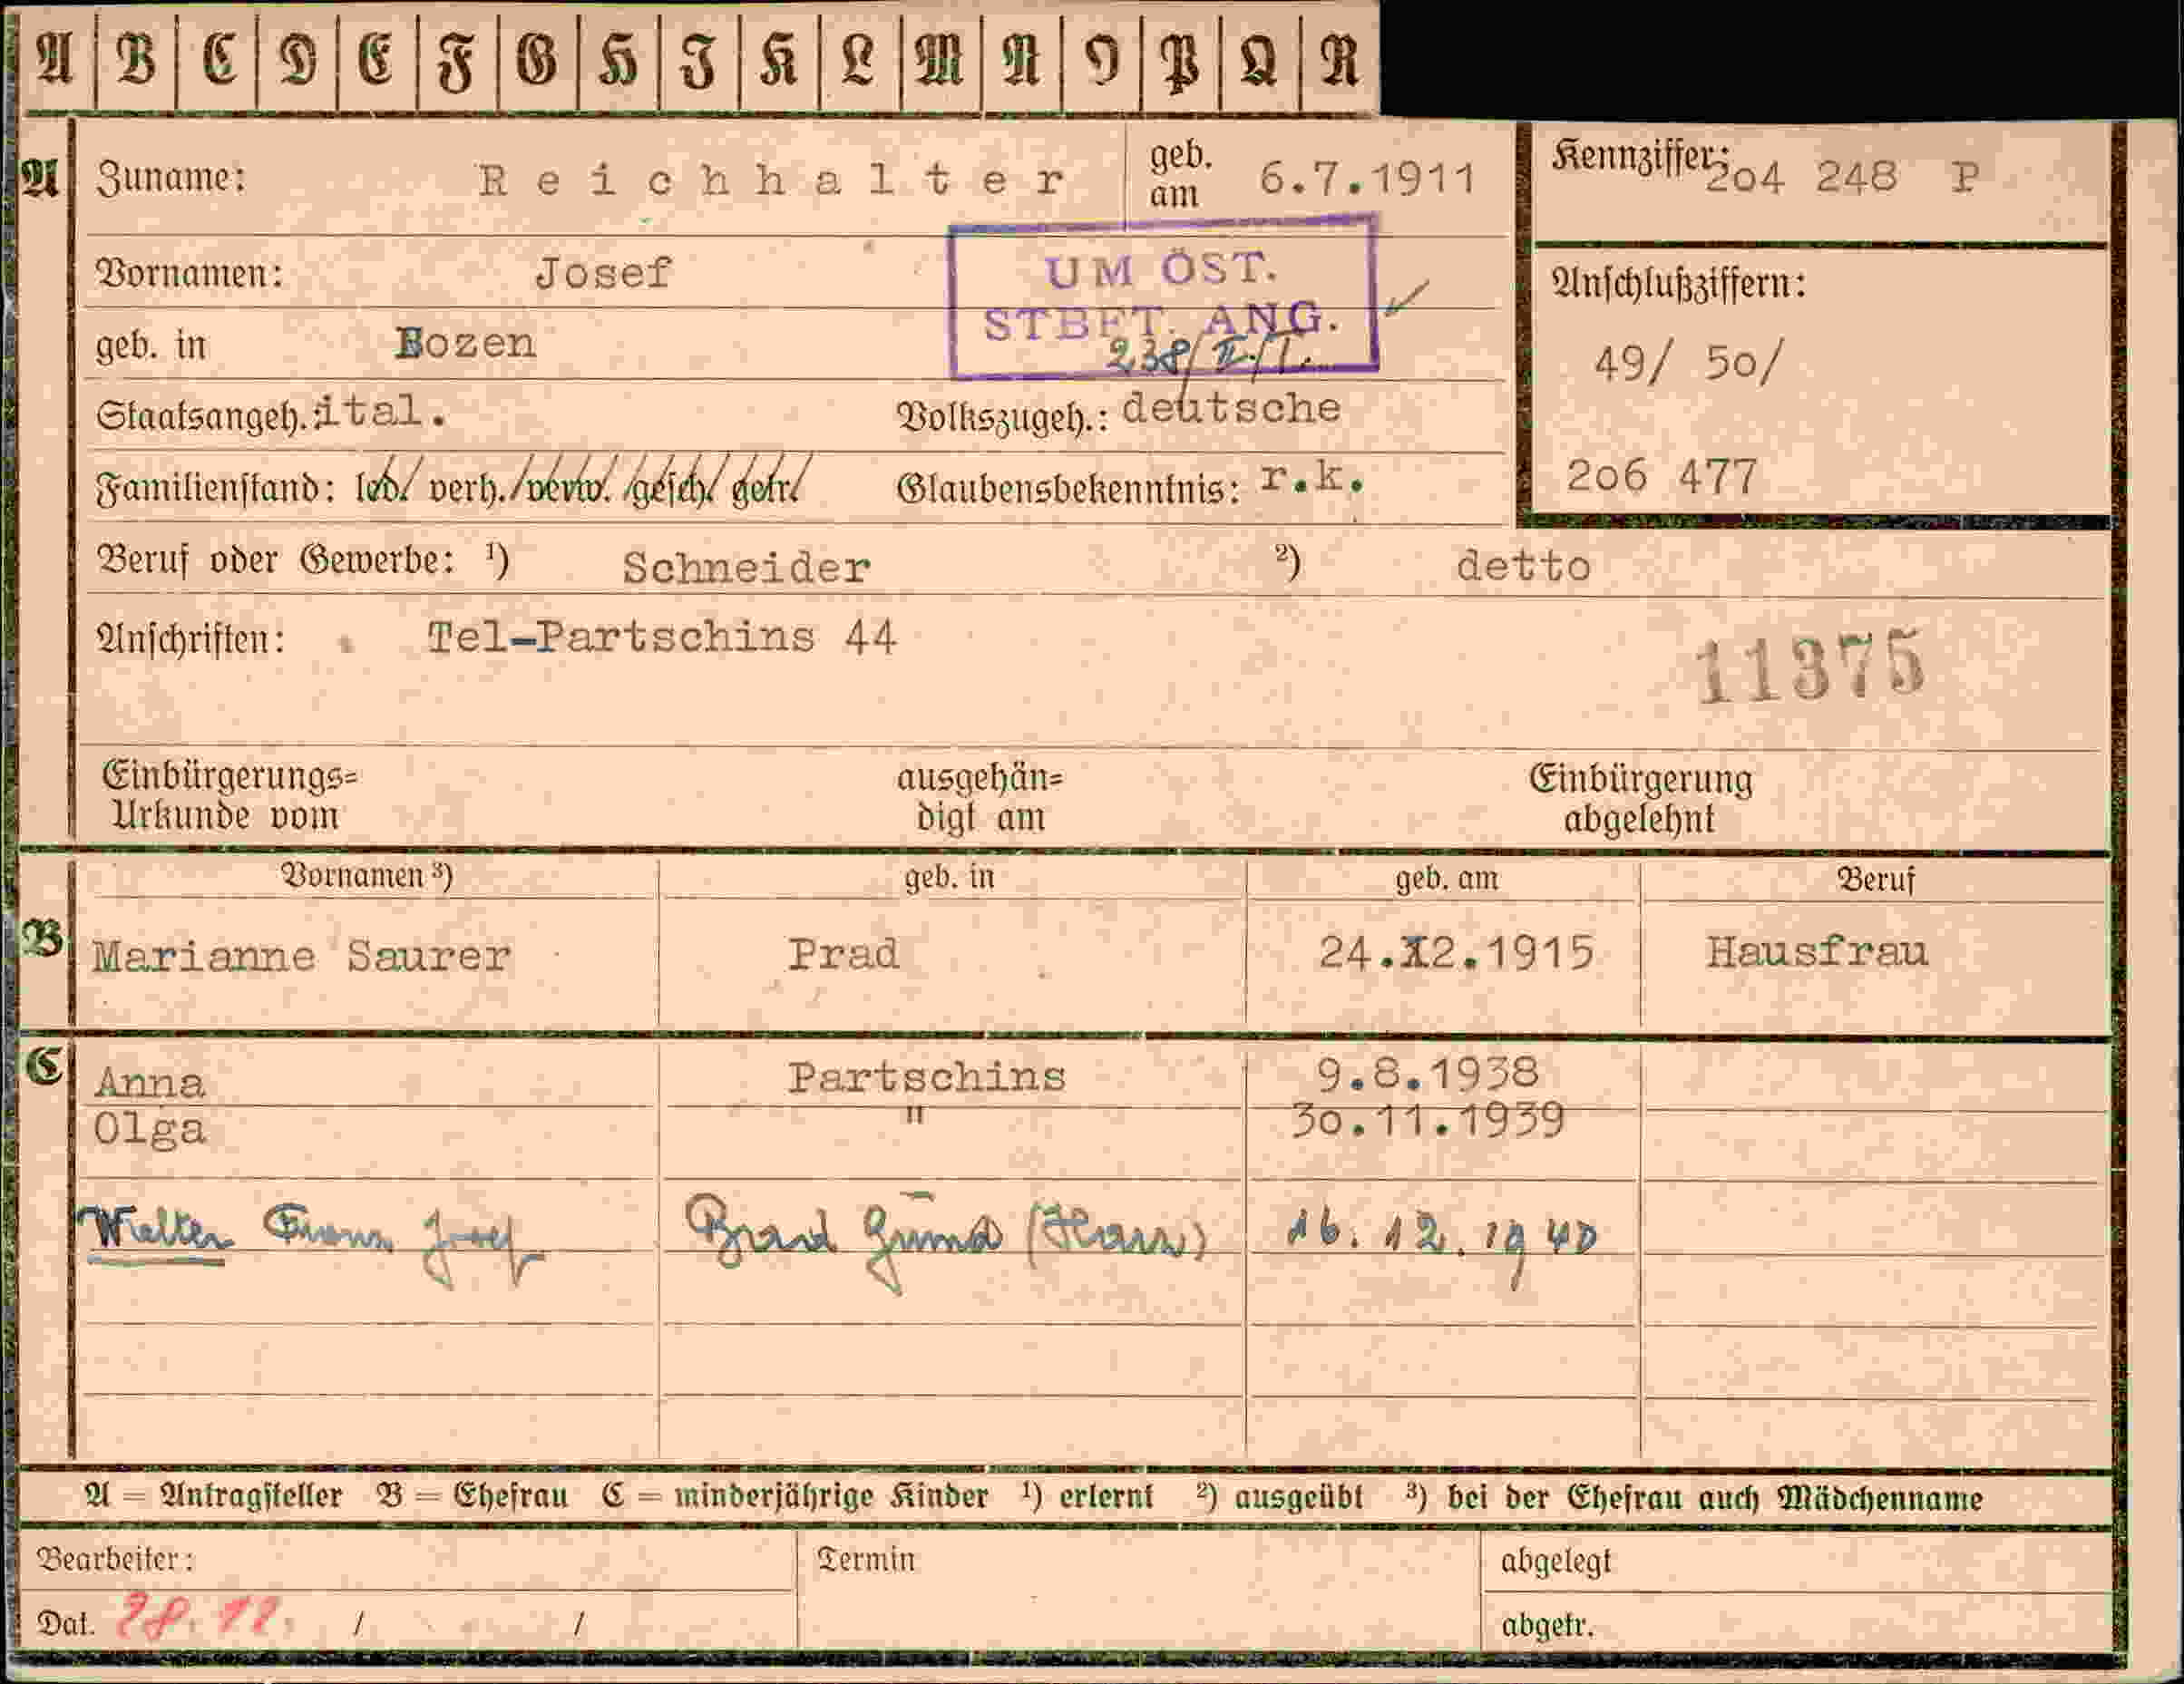 A B C D E F G H I K L M N O P Q R
A Zuname: Reichhalter geb. am 6.7.1911 Kennziffer: 2o4 248 P
Vornamen: Josef UM ÖST. Anschlußziffern:
STBFT. ANG.
geb. in Bozen 238/II./1. 49/ 5o/
Staatsangeh.: ital. Volkszugeh.: deutsche
Familienstand: led/ verh./verw./gesch/ getr/ Glaubensbekenntnis: r.k. 2o6 477
Beruf oder Gewerbe: ¹) Schneider ²) detto
Anschriften: Tel-Partschins 44
11375
Einbürgerungs= ausgehän= Einbürgerung
Urkunde vom digt am abgelehnt
Vornamen ³) geb. in geb. am Beruf
B Marianne Saurer Prad 24.12.1915 Hausfrau
C Anna Partschins 9.8.1938
Olga " 3o.11.1939
Walter Franz Josef 16.12.1940
A = Antragsteller B = Ehefrau C = minderjährige Kinder ¹) erlernt ²) ausgeübt ³) bei der Ehefrau auch Mädchenname
Bearbeiter: Termin abgelegt
Dat. 28.12. / / abgetr.